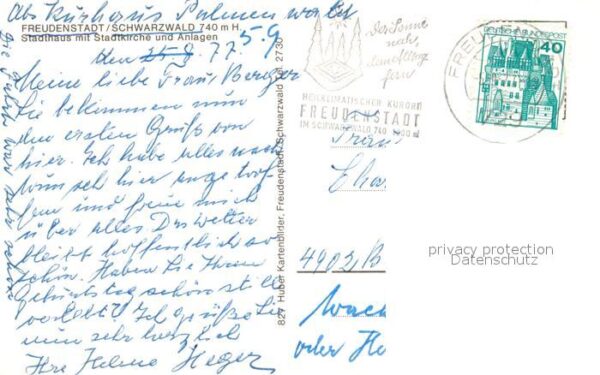 Abs Kurhaus Palmenwald
FREUDENSTADT/SCHWARZWALD 740 m H.
Stadthaus mit Stadtkirche und Anlagen
den 5.9.77
Meine liebe Frau Berger
Sie bekommen nun
den ersten Gruß von
hier. Ich habe alles nach
Wunsch hier angetrof
fen und freue mich
über alles Das Wetter
bleibt hoffentlich so
schön. Haben Sie Ihren
Geburtstag schön still
verlebt? Ich grüße Sie
nun sehr herzlich
Ihre Helene Heger
Die war sehr schön
829 Huber Kartenbilder, Freudenstadt/Schwarzwald Tel. 2730
Der Sonne
nah,
dem Alltag
fern
HEILKLIMATISCHER KURORT
FREUDENSTADT
IM SCHWARZWALD 740-1000 m
FREU
DEUTSCHE BUNDESPOST
40
Frau
Cha
4902, B
Wac
oder He
privacy protection
Datenschutz